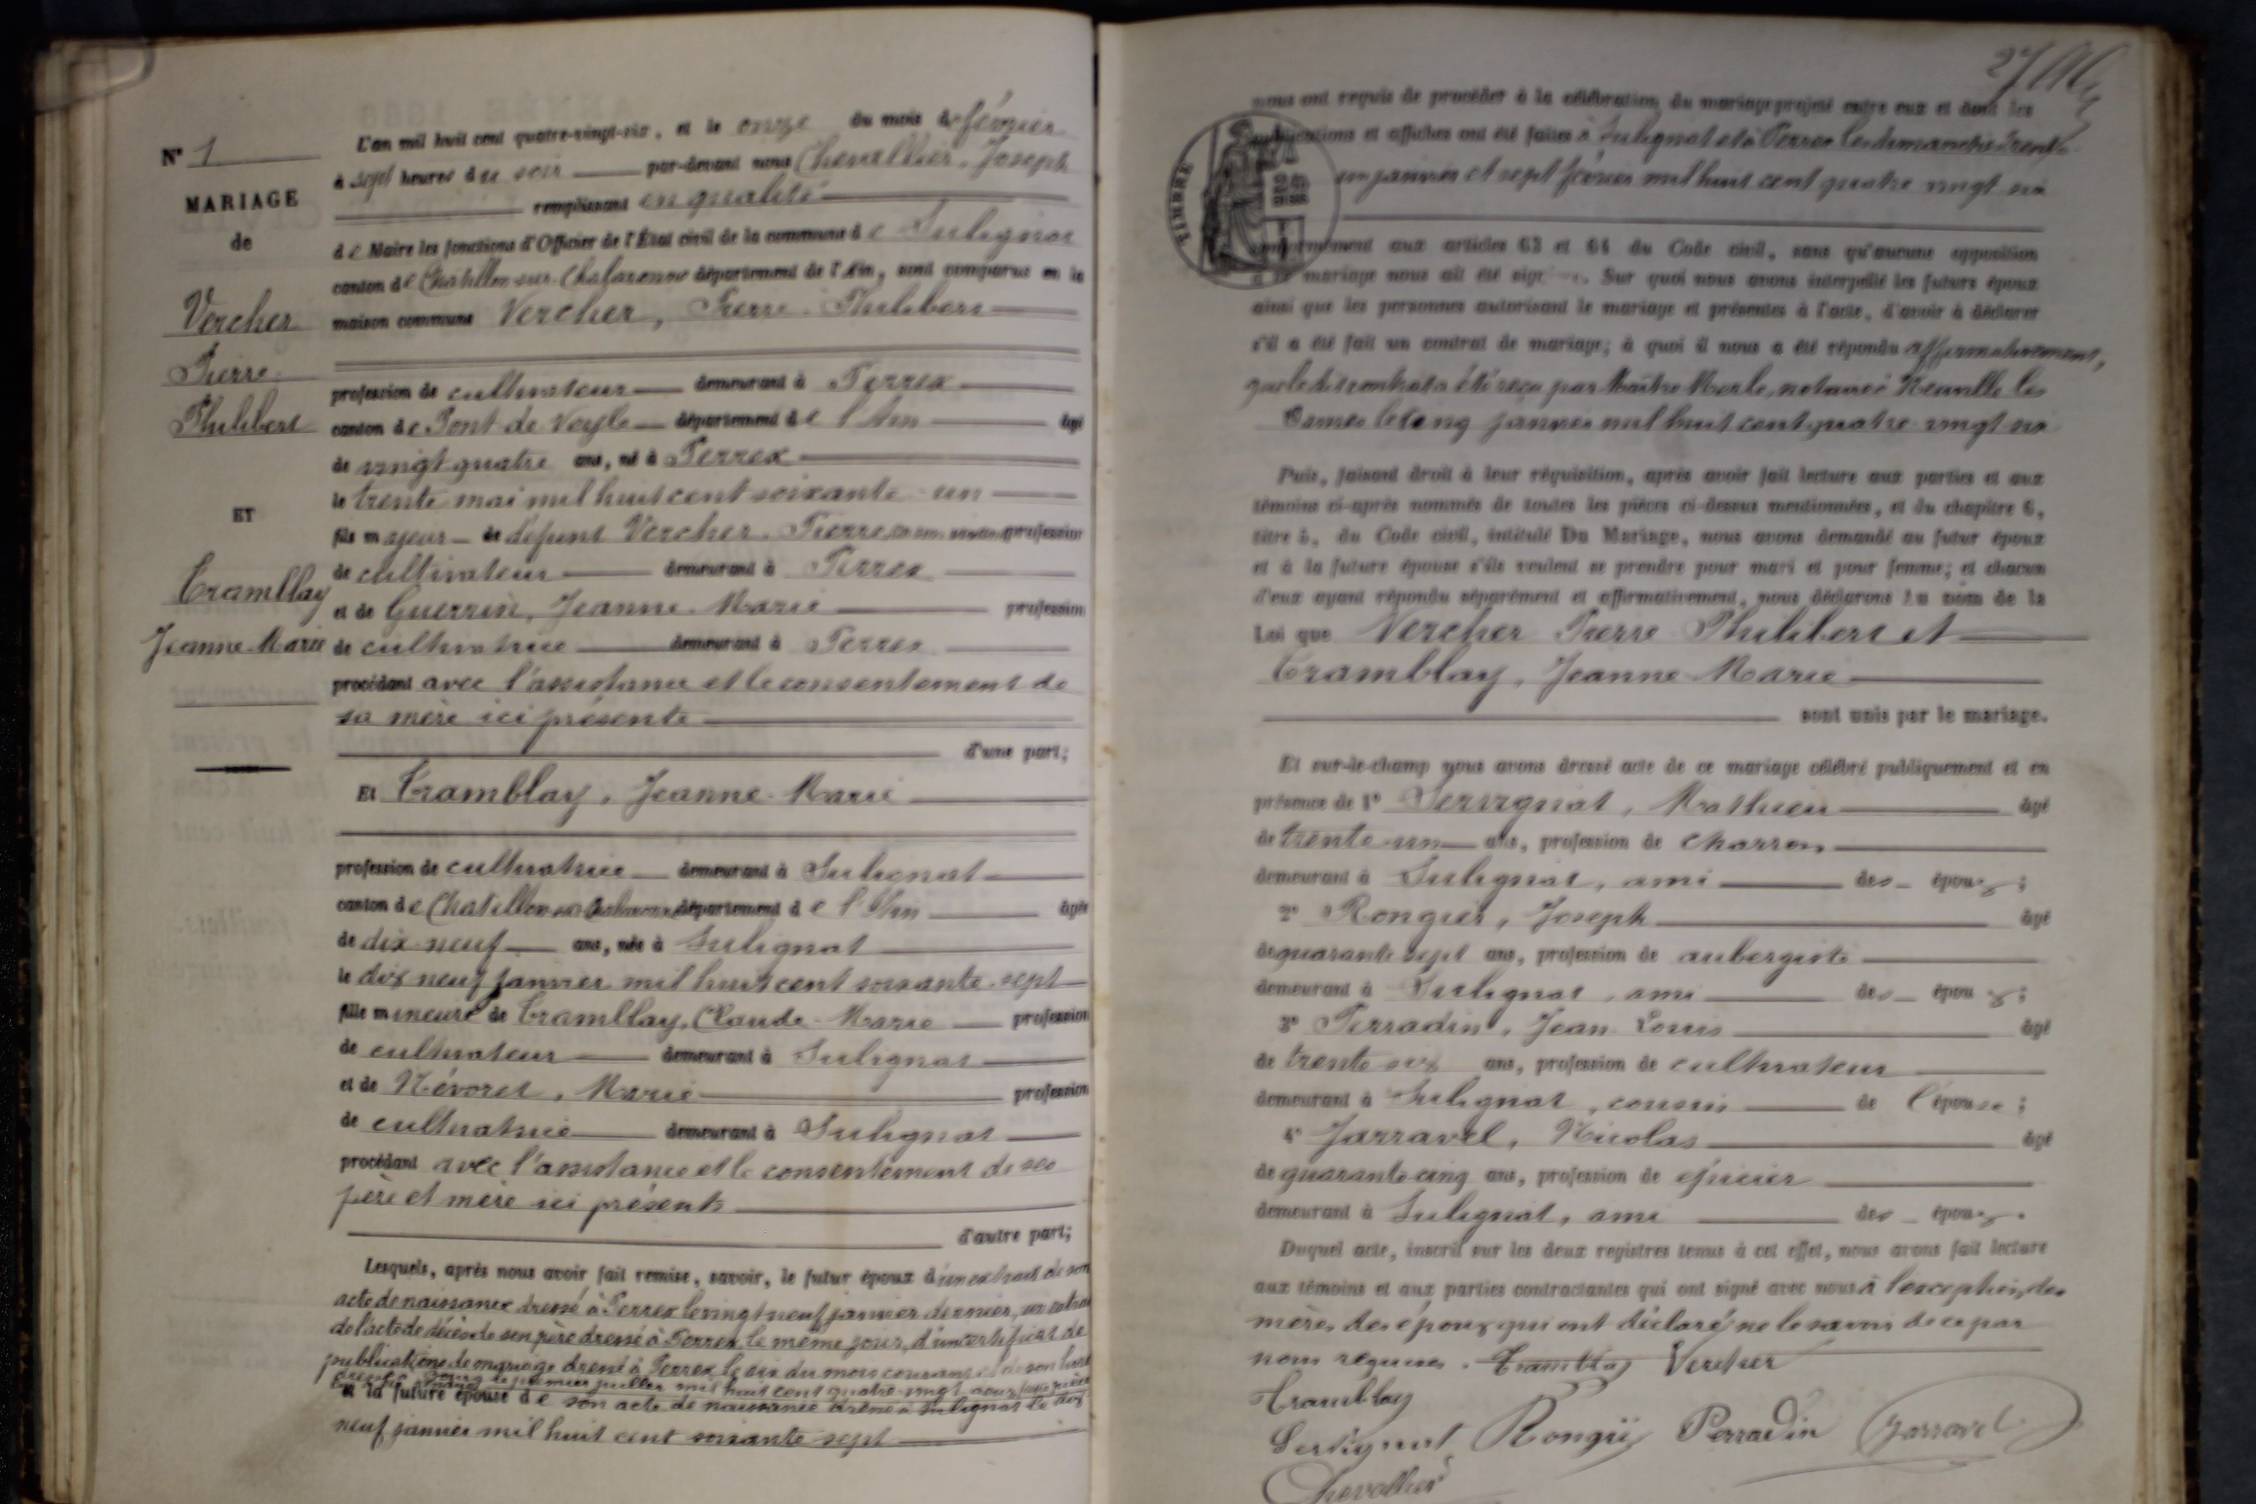 N° 1
MARIAGE
de
Vercher
Pierre
Philibert
ET
Tramblay
Jeanne-Marie
L'an mil huit cent quatre-vingt-six, et le onze du mois de février
à sept heures du soir par-devant nous Chevallier, Joseph
remplissant en qualité
de Maire les fonctions d'Officier de l'État civil de la commune de Sulignat
canton de Chatillon-sur-Chalaronne département de l'Ain, sont comparus en la
maison commune Vercher, Pierre-Philibert
profession de cultivateur demeurant à Perrex
canton de Pont de Veyle département de l'Ain âgé
de vingt quatre ans, né à Perrex
le trente mai mil huit cent soixante-un
fils majeur de défunt Vercher, Pierre profession
de cultivateur demeurant à Perrex
et de Guerrin, Jeanne-Marie profession
de cultivatrice demeurant à Perrex
procédant avec l'assistance et le consentement de
sa mère ici présente
d'une part;
Et Tramblay, Jeanne-Marie
profession de cultivatrice demeurant à Sulignat
canton de Chatillon-sur-Chalaronne département de l'Ain âgée
de dix-neuf ans, née à Sulignat
le dix neuf janvier mil huit cent soixante-sept
fille mineure de Tramblay, Claude-Marie profession
de cultivateur demeurant à Sulignat
et de Névoret, Marie profession
de cultivatrice demeurant à Sulignat
procédant avec l'assistance et le consentement de ses
père et mère ici présents
d'autre part;
Lesquels, après nous avoir fait remise, savoir, le futur époux d'un extrait de son
acte de naissance dressé à Perrex le vingt neuf janvier dernier, un extrait
de l'acte de décès de son père dressé à Perrex le même jour, d'un certificat de
publications de mariage dressé à Perrex le dix du mois courant et de son livret
premier juillet mil huit cent quatre-vingt
et la future épouse de son acte de naissance dressé à Sulignat le dix
neuf janvier mil huit cent soixante sept
27
nous ont requis de procéder à la célébration du mariage projeté entre eux et dont les
publications et affiches ont été faites à Sulignat et à Perrex les dimanches trente
un janvier et sept février mil huit cent quatre vingt six
TIMBRE
conformément aux articles 63 et 64 du Code civil, sans qu'aucune opposition
à ce mariage nous ait été signifiée. Sur quoi nous avons interpellé les futurs époux
ainsi que les personnes autorisant le mariage et présentes à l'acte, d'avoir à déclarer
s'il a été fait un contrat de mariage; à quoi il nous a été répondu affirmativement,
que le dit contrat a été reçu par Maître Merle, notaire à Neuville les
Dames le cinq janvier mil huit cent quatre vingt six
Puis, faisant droit à leur réquisition, après avoir fait lecture aux parties et aux
témoins ci-après nommés de toutes les pièces ci-dessus mentionnées, et du chapitre 6,
titre 5, du Code civil, intitulé Du Mariage, nous avons demandé au futur époux
et à la future épouse s'ils veulent se prendre pour mari et pour femme; et chacun
d'eux ayant répondu séparément et affirmativement, nous déclarons au nom de la
Loi que Vercher Pierre Philibert et
Tramblay, Jeanne-Marie
sont unis par le mariage.
Et sur-le-champ nous avons dressé acte de ce mariage célébré publiquement et en
présence de 1° Servignat, Mathieu âgé
de trente-un ans, profession de charron
demeurant à Sulignat, ami des époux;
2° Rongier, Joseph âgé
de quarante sept ans, profession de aubergiste
demeurant à Sulignat, ami des époux;
3° Perradin, Jean Louis âgé
de trente six ans, profession de cultivateur
demeurant à Sulignat, cousin de l'épouse;
4° Jarravel, Nicolas âgé
de quarante-cinq ans, profession de épicier
demeurant à Sulignat, ami des époux.
Duquel acte, inscrit sur les deux registres tenus à cet effet, nous avons fait lecture
aux témoins et aux parties contractantes qui ont signé avec nous à l'exception des
mères des époux qui ont déclaré ne le savoir de ce par
nous requises. Tramblay Vercher
Tramblay
Servignat Rongié Perradin Jarravel
Chevallier